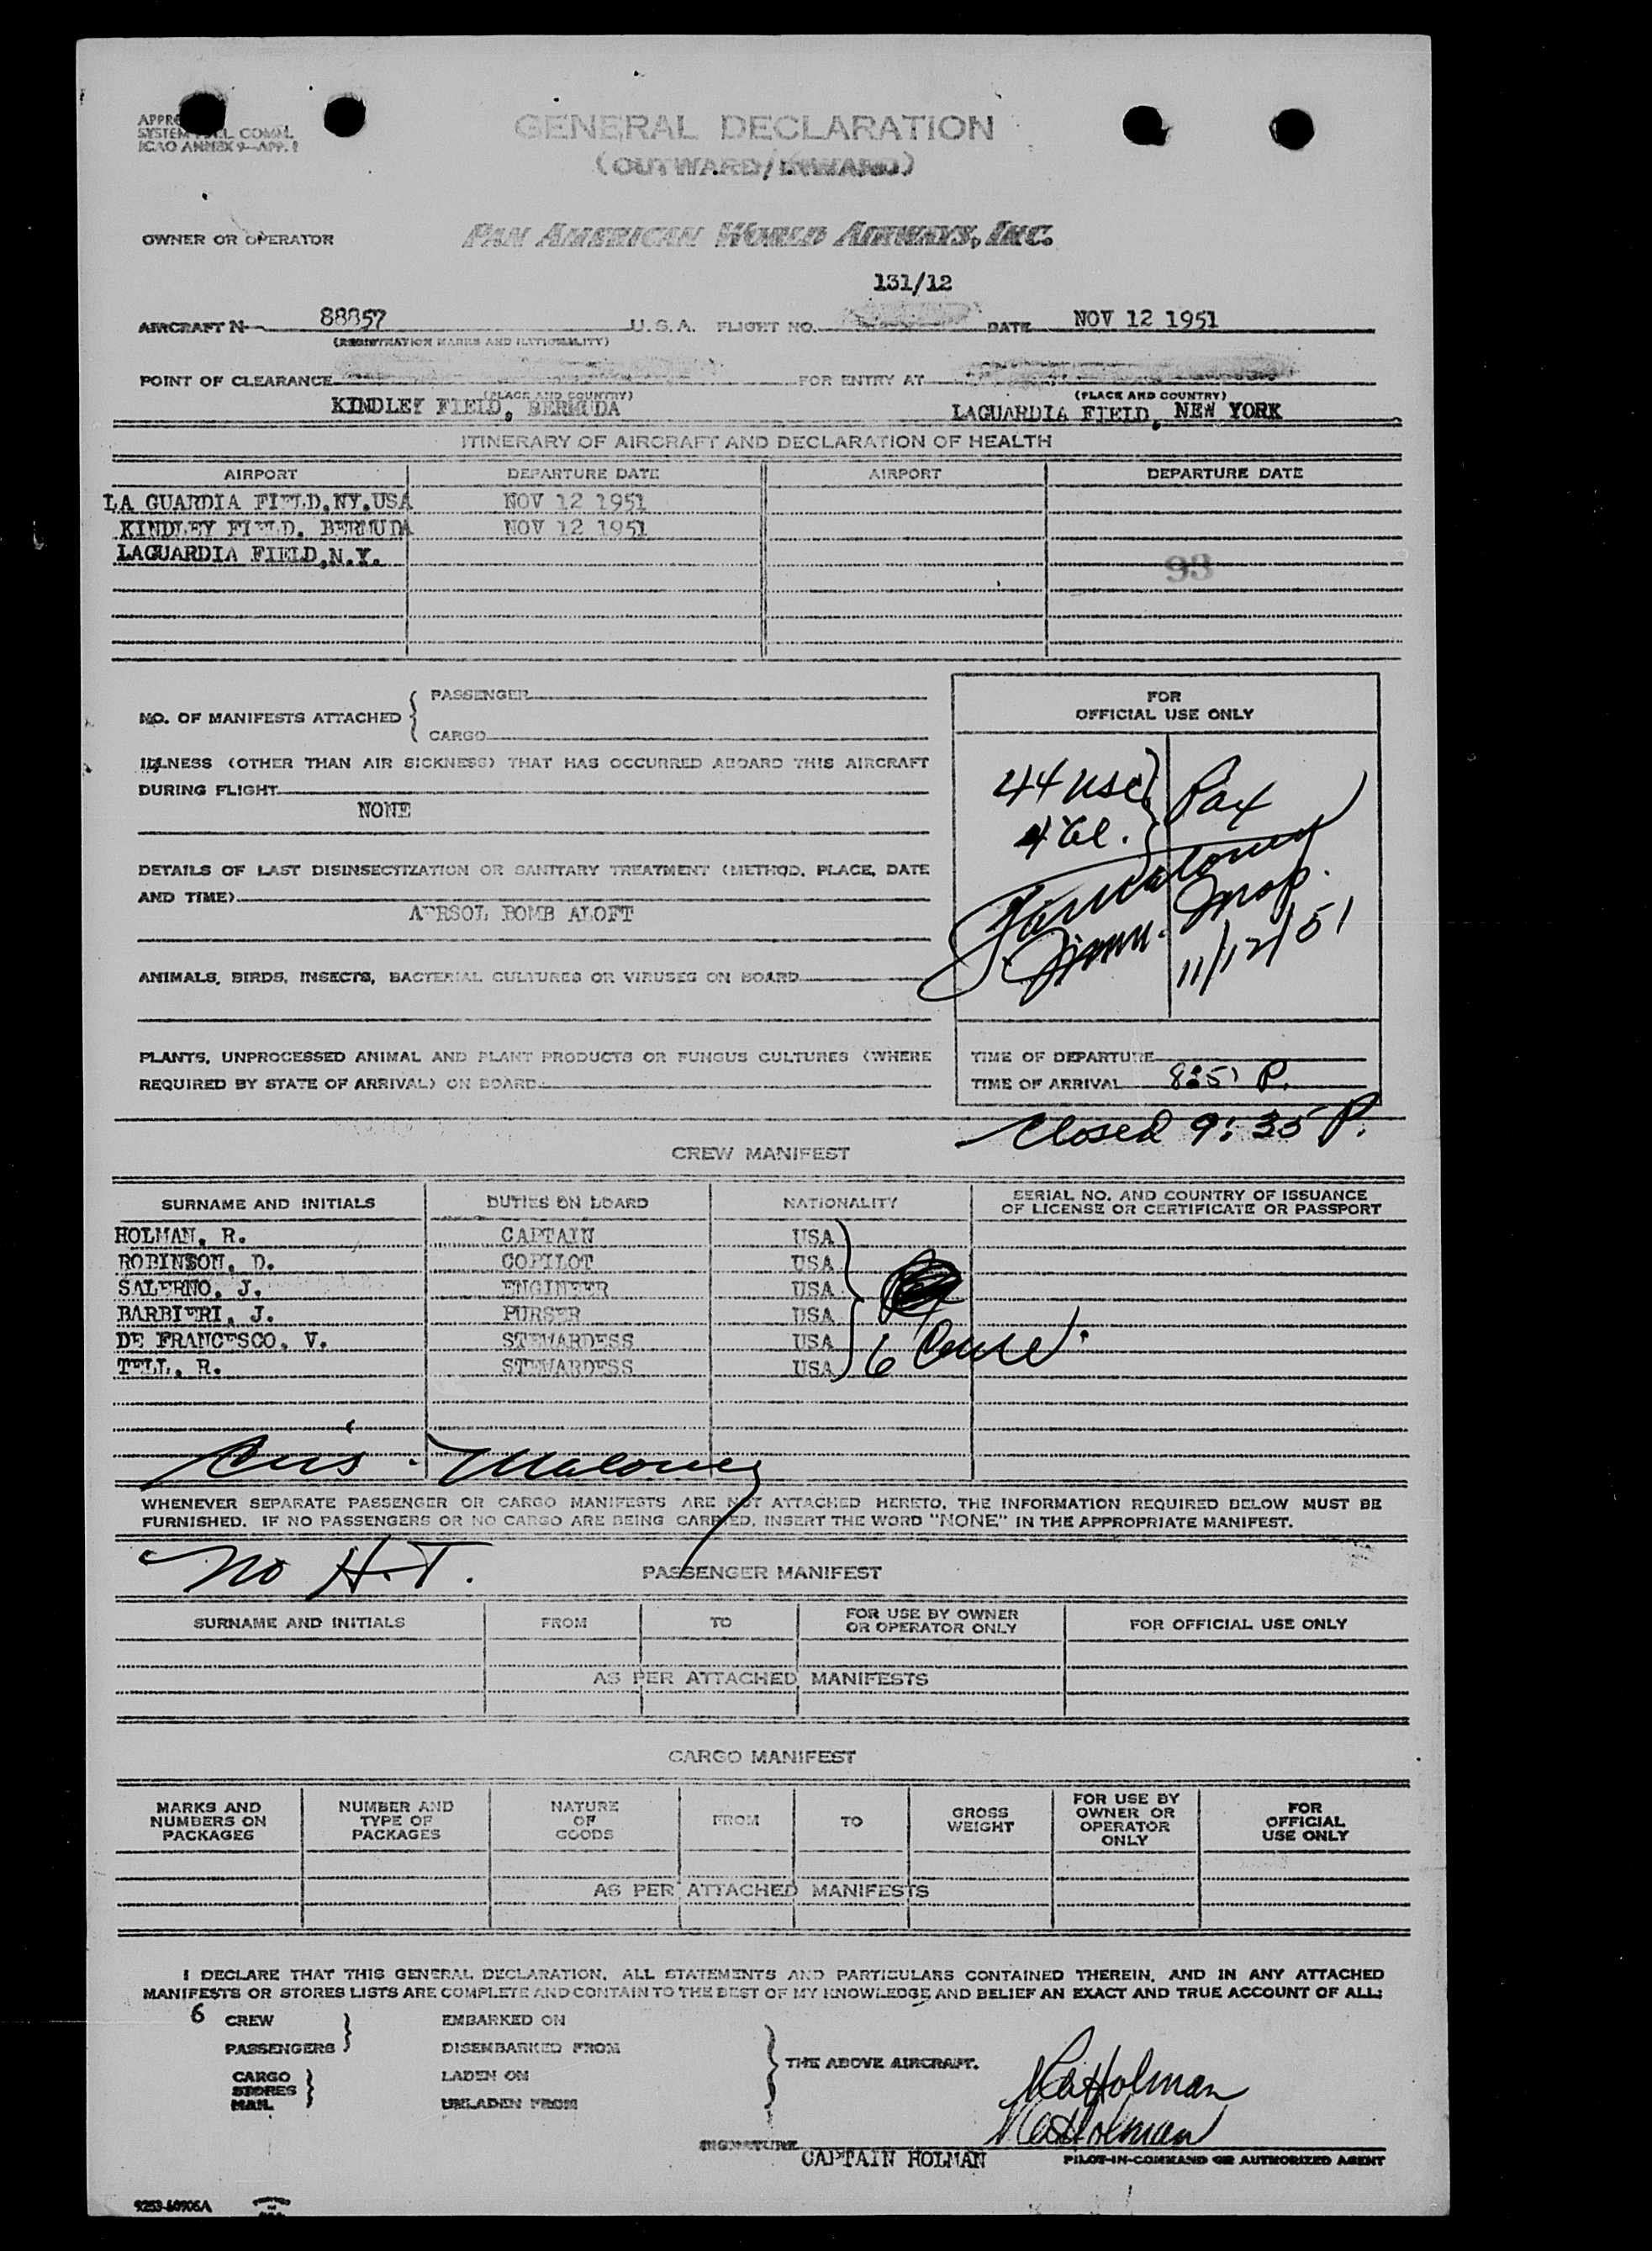 GENERAL DECLARATION
(OUTWARD/INWARD)
SYSTEM COML.
ICAO ANNEX 9—APP. 1
OWNER OR OPERATOR PAN AMERICAN WORLD AIRWAYS, INC.
131/12
AIRCRAFT N 88857 U.S.A. FLIGHT NO. DATE NOV 12 1951
(REGISTRATION MARKS AND NATIONALITY)
POINT OF CLEARANCE FOR ENTRY AT
(PLACE AND COUNTRY) (PLACE AND COUNTRY)
KINDLEY FIELD, BERMUDA LAGUARDIA FIELD, NEW YORK
ITINERARY OF AIRCRAFT AND DECLARATION OF HEALTH
AIRPORT DEPARTURE DATE AIRPORT DEPARTURE DATE
LA GUARDIA FIELD,NY.USA NOV 12 1951
KINDLEY FIELD. BERMUDA NOV 12 1951
LAGUARDIA FIELD,N.Y.
93
NO. OF MANIFESTS ATTACHED { PASSENGER
CARGO
ILLNESS (OTHER THAN AIR SICKNESS) THAT HAS OCCURRED ABOARD THIS AIRCRAFT
DURING FLIGHT
NONE
DETAILS OF LAST DISINSECTIZATION OR SANITARY TREATMENT (METHOD, PLACE, DATE
AND TIME)
AERSOL BOMB ALOFT
ANIMALS, BIRDS, INSECTS, BACTERIAL CULTURES OR VIRUSES ON BOARD
PLANTS, UNPROCESSED ANIMAL AND PLANT PRODUCTS OR FUNGUS CULTURES (WHERE
REQUIRED BY STATE OF ARRIVAL) ON BOARD
FOR
OFFICIAL USE ONLY
44 USC } Pax
4 al.
Maloney
Imm. Insp.
11/12/51
TIME OF DEPARTURE
TIME OF ARRIVAL 8:51 P.
Closed 9:35 P.
CREW MANIFEST
SURNAME AND INITIALS DUTIES ON BOARD NATIONALITY SERIAL NO. AND COUNTRY OF ISSUANCE
OF LICENSE OR CERTIFICATE OR PASSPORT
HOLMAN, R. CAPTAIN USA
ROBINSON, D. COPILOT USA
SALERNO, J. ENGINEER USA
BARBIERI, J. PURSER USA
DE FRANCESCO, V. STEWARDESS USA
TELL, R. STEWARDESS USA
6
Maloney
WHENEVER SEPARATE PASSENGER OR CARGO MANIFESTS ARE NOT ATTACHED HERETO, THE INFORMATION REQUIRED BELOW MUST BE
FURNISHED. IF NO PASSENGERS OR NO CARGO ARE BEING CARRIED, INSERT THE WORD "NONE" IN THE APPROPRIATE MANIFEST.
No H.T.
PASSENGER MANIFEST
SURNAME AND INITIALS FROM TO FOR USE BY OWNER
OR OPERATOR ONLY FOR OFFICIAL USE ONLY
AS PER ATTACHED MANIFESTS
CARGO MANIFEST
MARKS AND
NUMBERS ON
PACKAGES NUMBER AND
TYPE OF
PACKAGES NATURE
OF
GOODS FROM TO GROSS
WEIGHT FOR USE BY
OWNER OR
OPERATOR
ONLY FOR
OFFICIAL
USE ONLY
AS PER ATTACHED MANIFESTS
I DECLARE THAT THIS GENERAL DECLARATION, ALL STATEMENTS AND PARTICULARS CONTAINED THEREIN, AND IN ANY ATTACHED
MANIFESTS OR STORES LISTS ARE COMPLETE AND CONTAIN TO THE BEST OF MY KNOWLEDGE AND BELIEF AN EXACT AND TRUE ACCOUNT OF ALL:
6 CREW EMBARKED ON
PASSENGERS DISEMBARKED FROM
THE ABOVE AIRCRAFT.
CARGO LADEN ON
STORES
MAIL UNLADEN FROM
R A Holman
R A Holman
SIGNATURE CAPTAIN HOLMAN PILOT-IN-COMMAND OR AUTHORIZED AGENT
9253-60906A